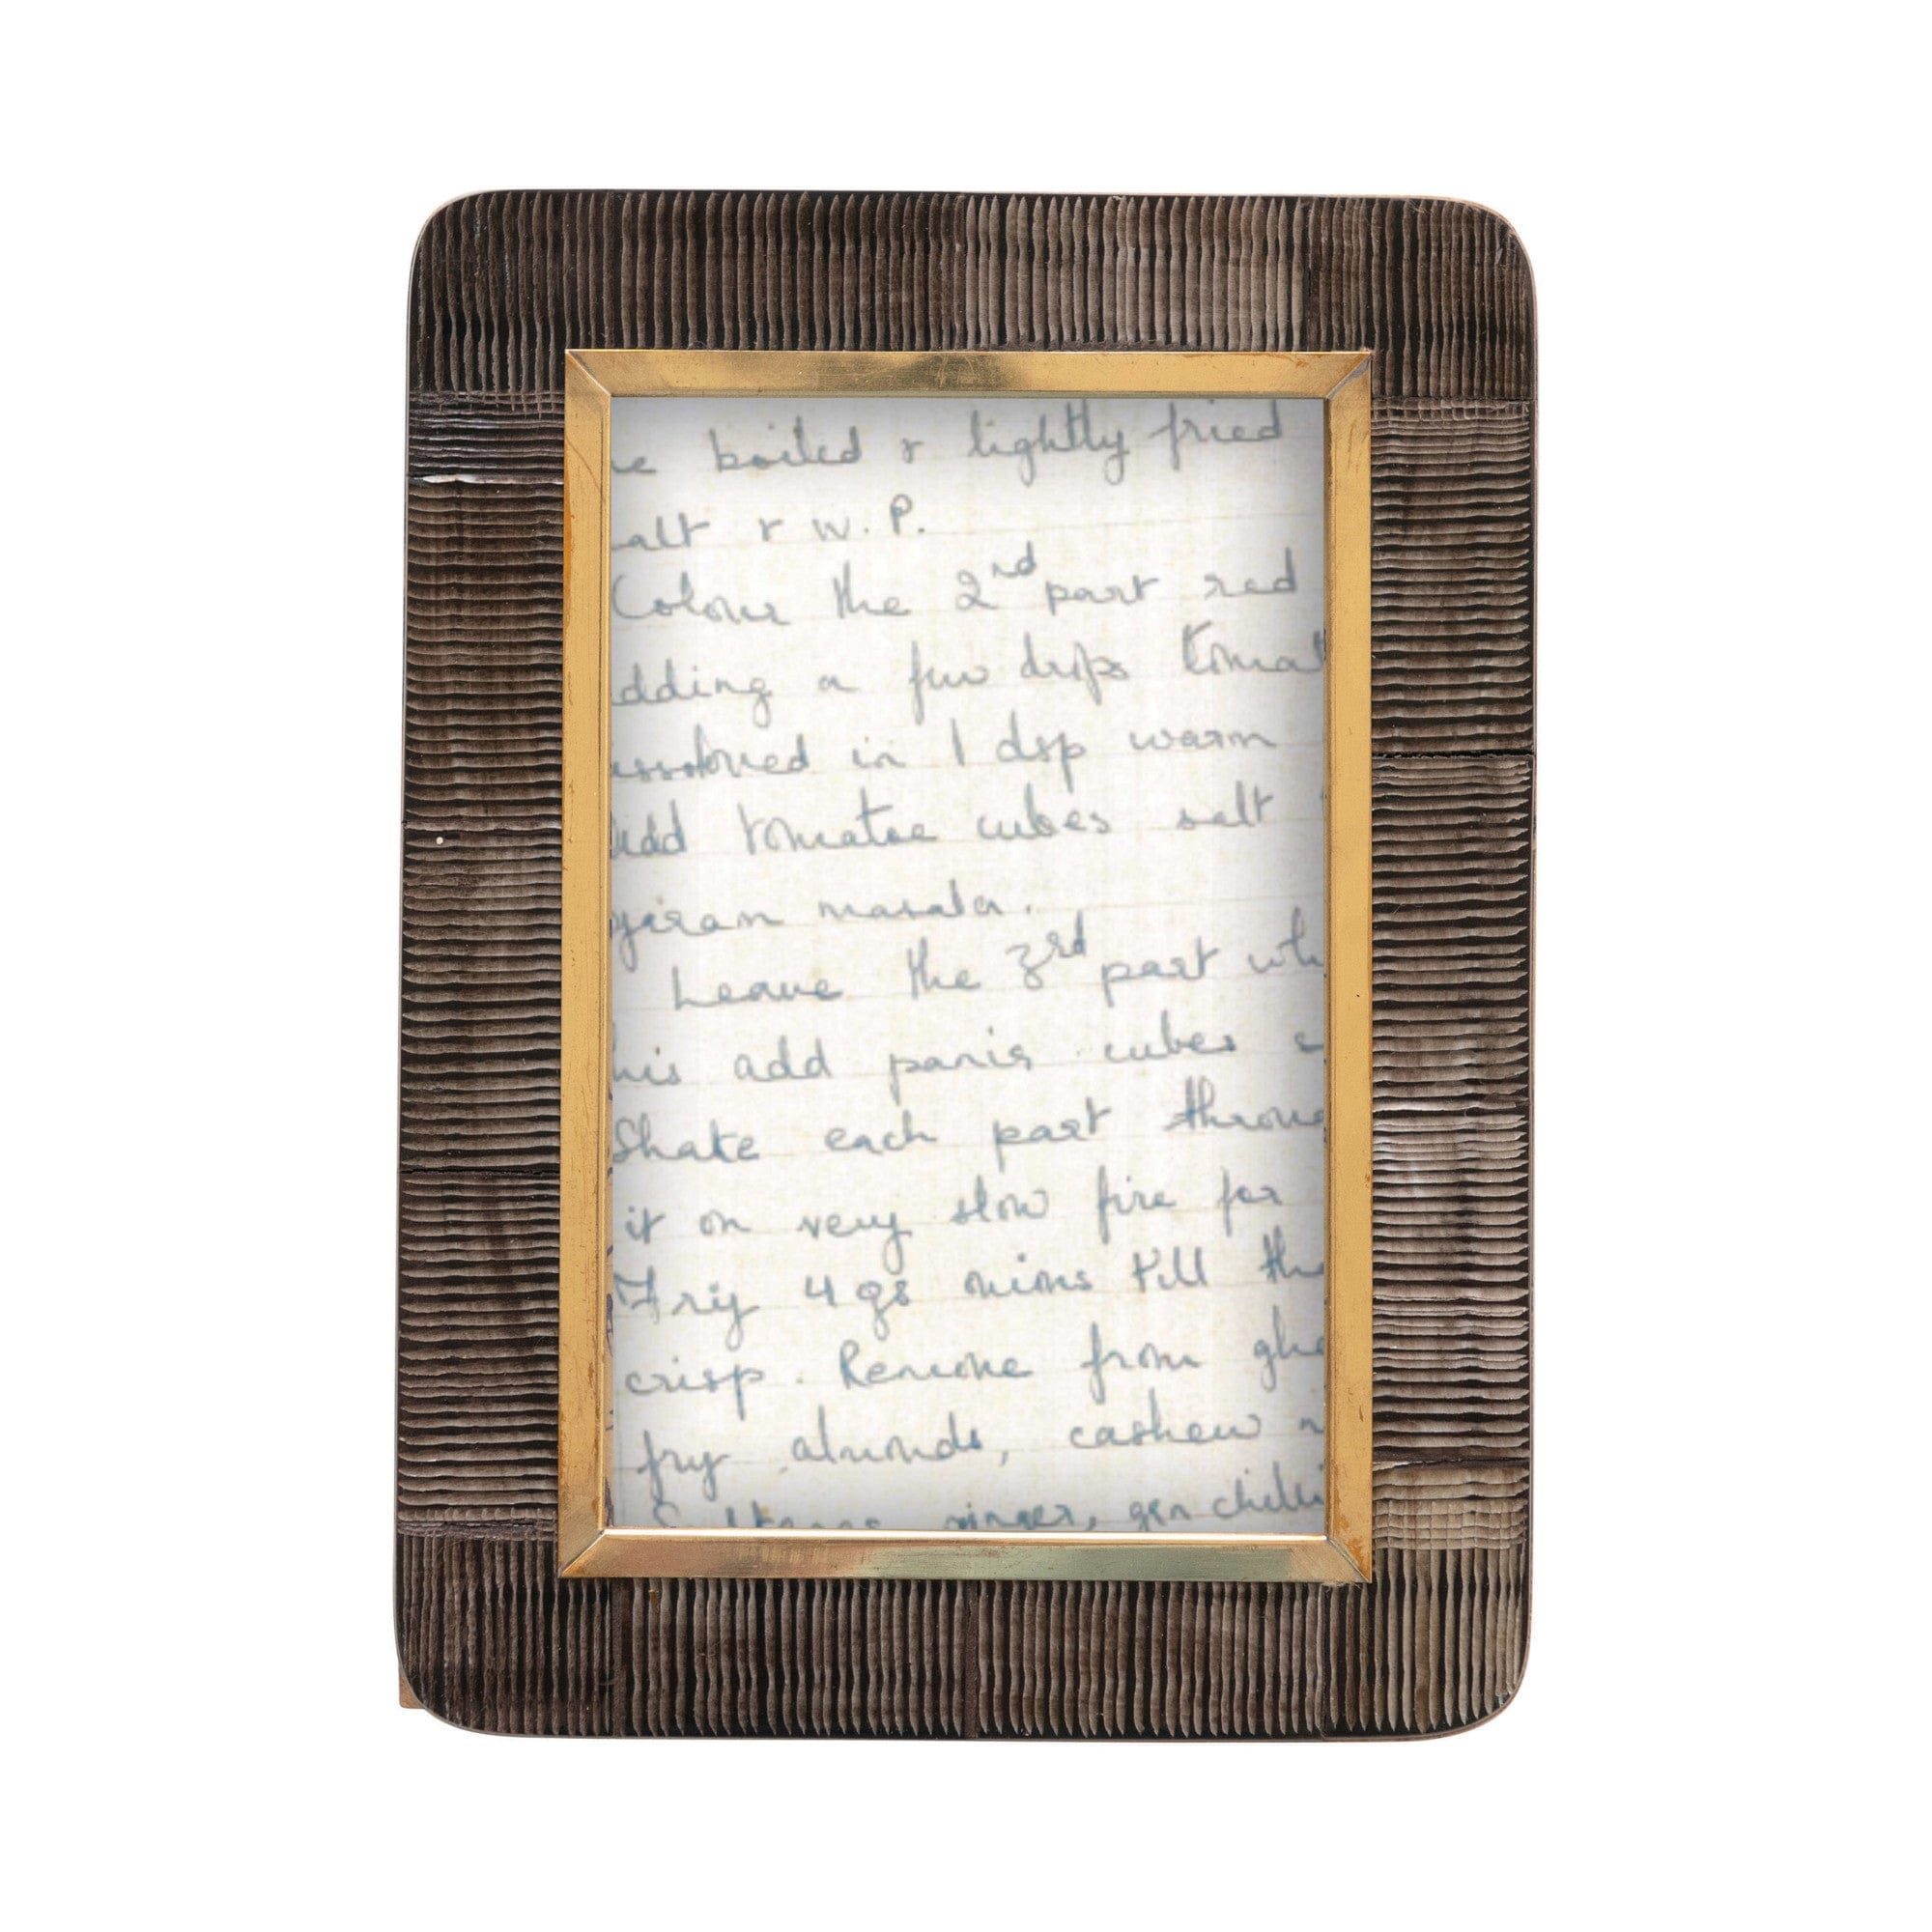 e boiled & lightly fried
alt & W.P.
Colour the 2nd part red
dding a few drops tomat
issolved in 1 dsp warm
Add tomatoe cubes salt
garam masala.
Leave the 3rd part wh
his add panir cubes
Shake each part throu
it on very slow fire for
Fry 4 gs onions till the
crisp. Remove from ghe
fry almonds, cashew n
Sultanas ginger, gen chilli